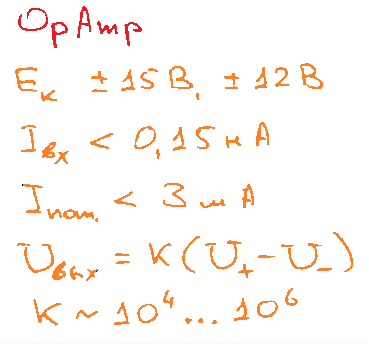 OpAmp
Eк ±15В, ±12В
Iвх < 0,15нА
Iпот. < 3мА
Uвых = K(U₊-U₋)
K ~ 10⁴...10⁶